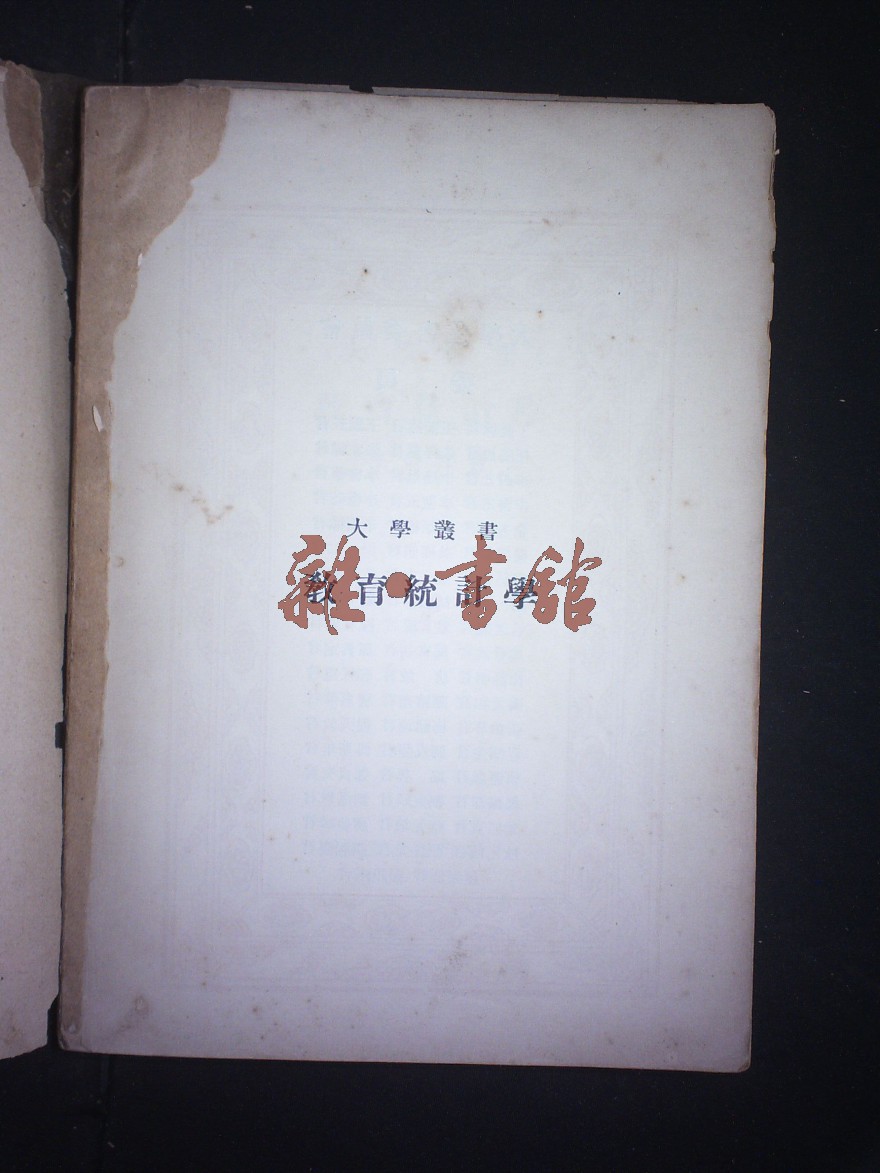 大學叢書
教育統計學
雜·書館